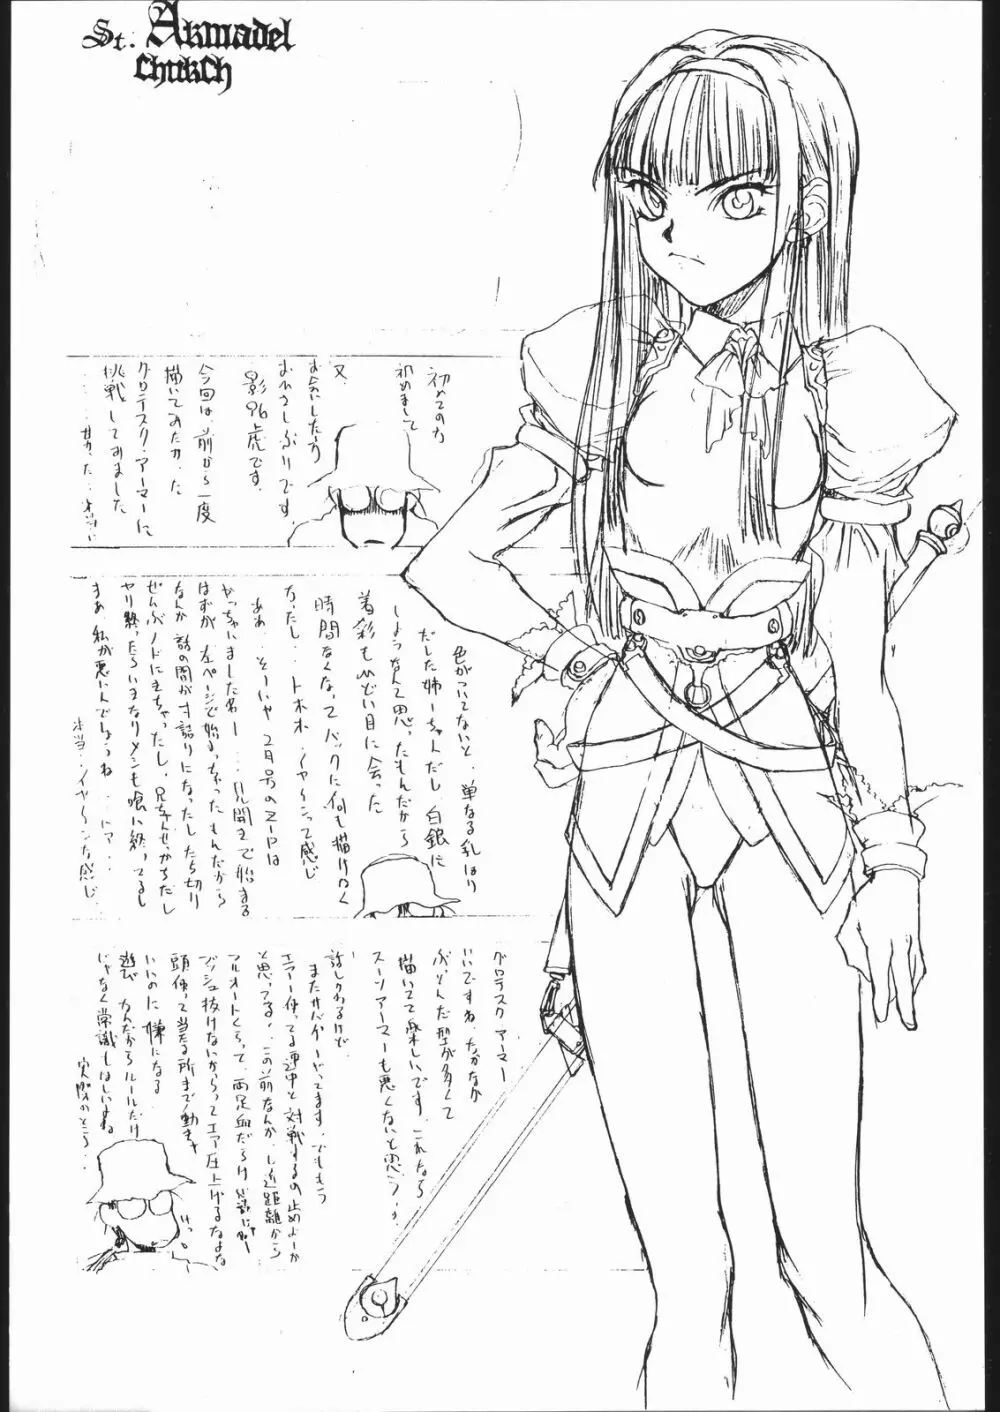 St. Armadel
Church
初めての方
初めまして
又、
お会いしたろう
おひさしぶりです。
影96虎です。
今回は、前から一度
描いてみたかった
グロテスク・アーマーに
挑戦してみました
色がついてないと、単なる乳はり
だした姉ーちゃんだし、白銀に
しようなんて思ったもんだから
着彩もひどい目に会った
時間なくなってバックに何も描けなく
なったし、トホホ、イヤ〜ンって感じ
ああ、そーいや2月号の
やっちゃいました名ー見開きで始まる
はずが、左ページで始まっちゃったもんだから
なんか話の間が寸詰りになったしたち切り
ぜんぶノドにきちゃったし、兄ちゃんせっかちだし
ヤリ終ったらいきなりメンも喰い終ってるし
まあ、私が悪いんでしょうね
本当、イヤ〜ンな感じ
グロテスク アーマー
いいですね、なかなか
ぶっとんだ型が多くて
描いてて楽しいです。これなら
スーツアーマーも悪くないと思う。
話しかわるけど、
またサバゲーやってます。でももう
エアー使ってる連中と対戦するの止めよーか
と思ってる。この前なんか、し近距離から
フルオートくらって、両足血だらけ
ブッシュ抜けないからってエアー圧上げるなよな
頭使って当たる所まで動きゃ
いいのに 嫌になる
遊びなんだからルールだけ
じゃなく常識もほしいよね
実際のところ